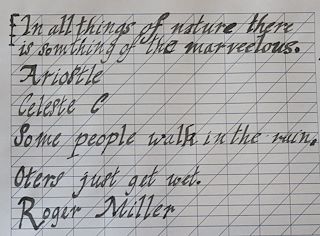 In all things of nature there
is somthing of the marveelous.
Ariostle
Celeste C
Some people walk in the rain.
Oters just get wet.
Roger Miller